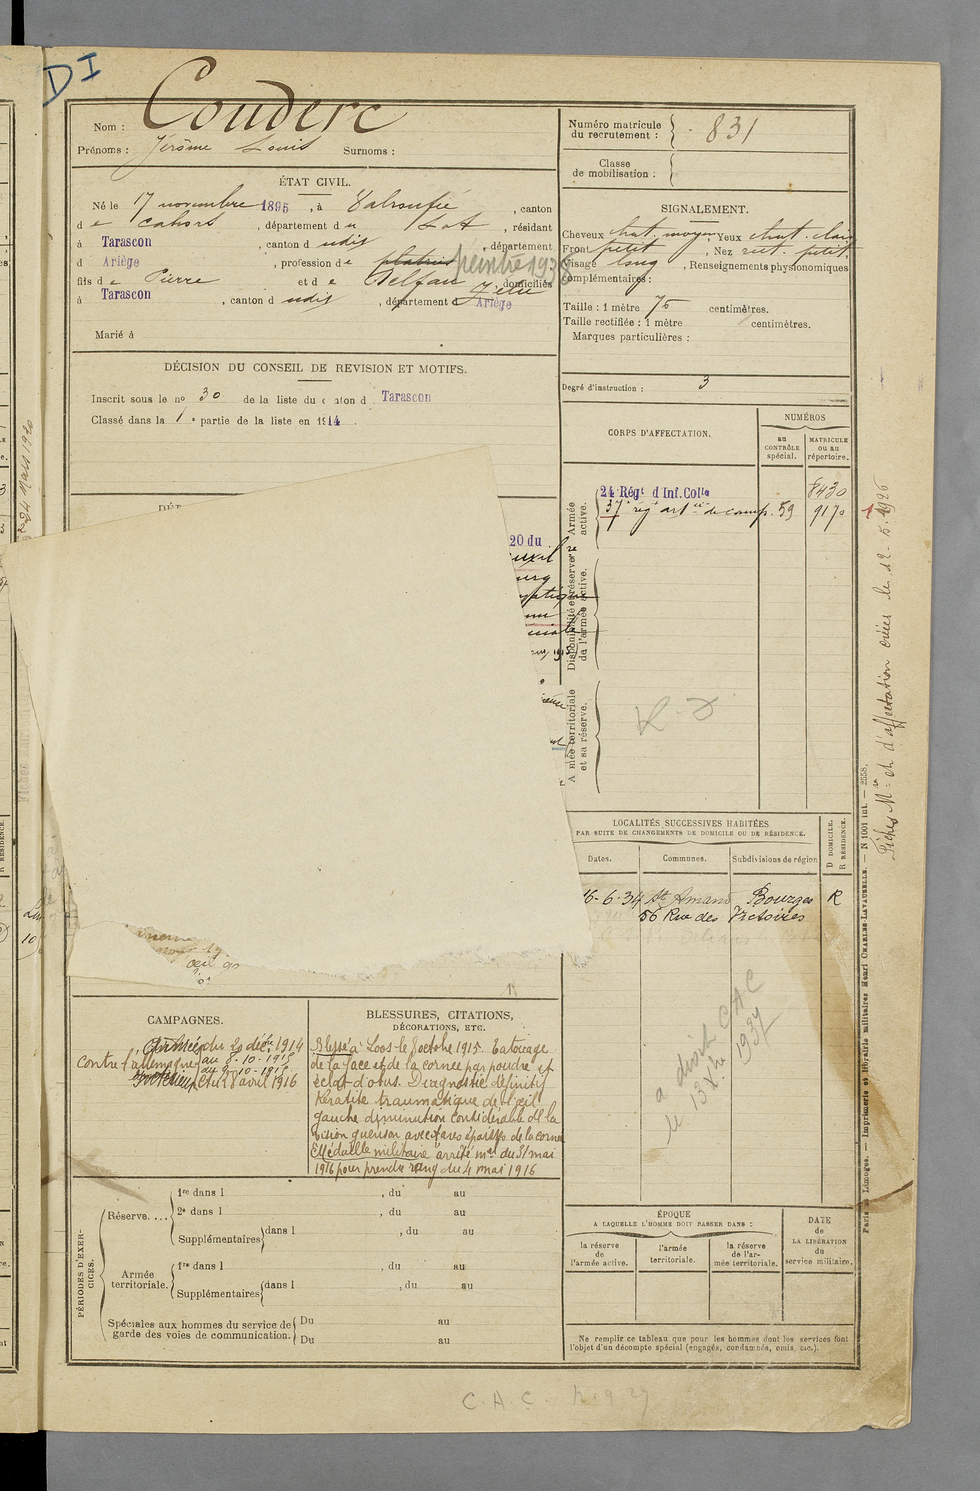 DI
Nom : Couderc
Prénoms : Jérôme Louis Surnoms :
ÉTAT CIVIL.
Né le 17 novembre 1895, à Valroufié, canton
de Cahors, département du Lot, résidant
à Tarascon, canton dudit, département
d Ariège, profession de platrier peintre 1938
fils de Pierre et de Delfau domiciliés
à Tarascon, canton dudit, département d Ariège
Marié à
DÉCISION DU CONSEIL DE REVISION ET MOTIFS.
Inscrit sous le no 30 de la liste du canton d Tarascon
Classé dans la 1e partie de la liste en 1914.
20 du
Numéro matricule
du recrutement : 831
Classe
de mobilisation :
SIGNALEMENT.
Cheveux chat. moyen, Yeux chat. clair
Front petit, Nez rect. petit.
Visage long, Renseignements physionomiques
complémentaires :
Taille : 1 mètre 75 centimètres.
Taille rectifiée : 1 mètre centimètres.
Marques particulières :
Degré d'instruction : 3
CORPS D'AFFECTATION.
NUMÉROS
au
CONTRÔLE
spécial.
MATRICULE
ou au
répertoire.
Armée
active.
24 Régt d Inf. Colle 8430
37e régt artie de camp. 59 9170
Disponibilité et réserve
de l'armée active.
Armée territoriale
et sa réserve.
R. D
LOCALITÉS SUCCESSIVES HABITÉES
PAR SUITE DE CHANGEMENTS DE DOMICILE OU DE RÉSIDENCE.
Dates.
Communes.
Subdivisions de région
D DOMICILE.
R RÉSIDENCE.
16-6-34 St Amand Bourges R
56 Rue des Victoires
a droit CAC
le 13 Xbre 1934
CAMPAGNES.
contre l'allemagne
Armées du 20 décbre 1914
au 8-10-1915
Intérieur du 9-10-1915
au 28 avril 1916
BLESSURES, CITATIONS,
DÉCORATIONS, ETC.
Blessé à Loos le 8 octobre 1915. Tatouage
de la face et de la cornée par poudre et
éclat d'obus. Diagnostic définitif
Kératite traumatique de l'œil
gauche diminution considérable de la
vision guérison avec taves épaisses de la cornée
Médaille militaire arrêté mel du 31 mai
1916 pour prendre rang du 4 mai 1916
PÉRIODES D'EXERCICES.
Réserve....
1re dans l , du au
2e dans l , du au
Supplémentaires dans l , du au
Armée
territoriale.
1re dans l , du au
Supplémentaires dans l , du au
Spéciales aux hommes du service de
garde des voies de communication.
Du au
Du au
ÉPOQUE
A LAQUELLE L'HOMME DOIT PASSER DANS :
la réserve
de
l'armée active.
l'armée
territoriale.
la réserve
de l'ar-
mée territoriale.
DATE
de
LA LIBÉRATION
du
service militaire.
Ne remplir ce tableau que pour les hommes dont les services font
l'objet d'un décompte spécial (engagés, condamnés, omis, etc.).
C.A.C.
Fiches Mle et d'affectation créées le 12-5-1926
Paris et Limoges. — Imprimerie et librairie militaires Henri CHARLES-LAVAUZELLE. — N 1001 int. — 2558.